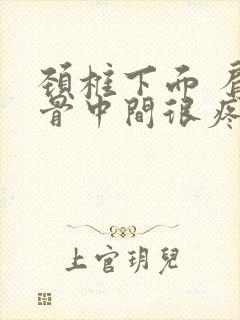 頚椎下面 肩
骨中間很疼
上官玥兒